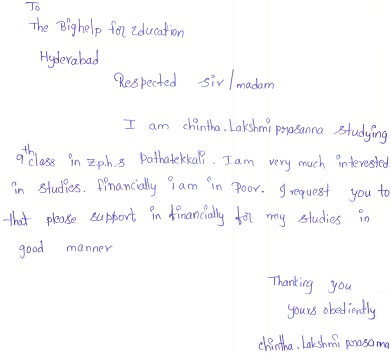 To
The Bighelp for Education
Hyderabad
Respected sir/madam
I am chintha.Lakshmi prasanna studying
9th class in z.p.h.s Pathatekkali. I am very much interested
in studies. financially i am in Poor. I request you to
that please support in financially for my studies in
good manner
Thanking you
yours obediently
chintha.Lakshmi prasanna